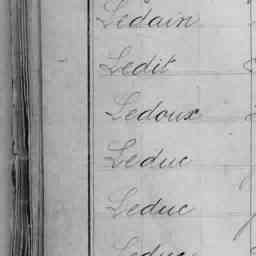 Ledain
Ledit
Ledoux
Leduc
Leduc
Leduc